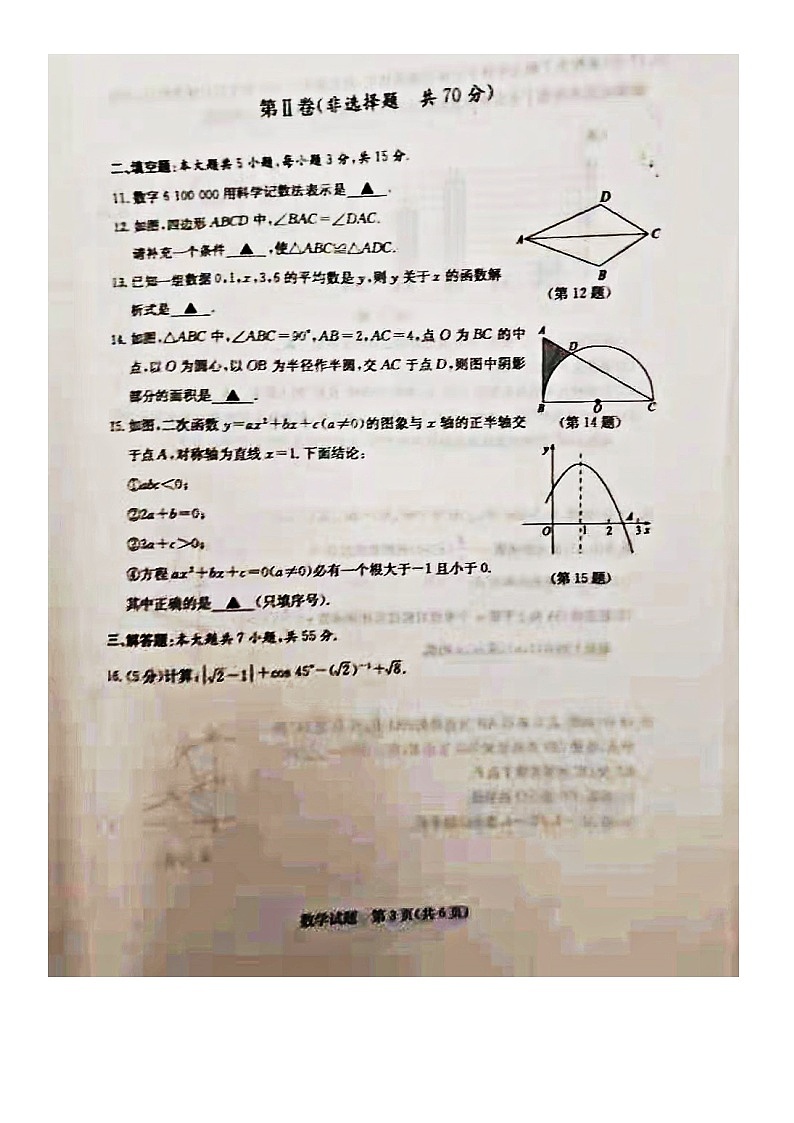 第Ⅱ卷(非选择题 共70分)
二、填空题:本大题共5小题,每小题3分,共15分.
11.数字6 100 000用科学记数法表示是 ▲ .
12.如图,四边形ABCD中,∠BAC=∠DAC.
请补充一个条件 ▲ ,使△ABC≌△ADC.
D
A
C
B
(第12题)
13.已知一组数据0,1,x,3,6的平均数是y,则y关于x的函数解
析式是 ▲ .
14.如图,△ABC中,∠ABC=90°,AB=2,AC=4,点O为BC的中
点,以O为圆心,以OB为半径作半圆,交AC于点D,则图中阴影
部分的面积是 ▲ .
A
D
B
O
C
(第14题)
15.如图,二次函数y=ax²+bx+c(a≠0)的图象与x轴的正半轴交
于点A,对称轴为直线x=1.下面结论:
①abc<0;
②2a+b=0;
③3a+c>0;
④方程ax²+bx+c=0(a≠0)必有一个根大于-1且小于0.
其中正确的是 ▲ (只填序号).
y
A
O 1 2 3 x
(第15题)
三、解答题:本大题共7小题,共55分.
16.(5分)计算:|√2-1|+cos 45°-(√2)⁻¹+√8.
数学试题 第3页(共6页)